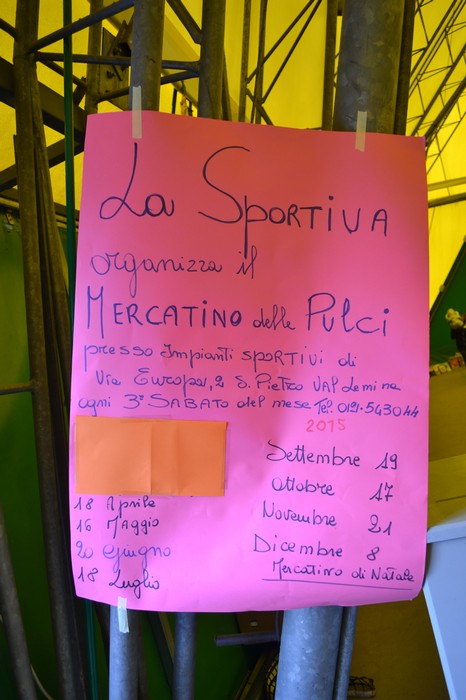 La Sportiva
organizza il
MERCATINO delle Pulci
presso Impianti sportivi di
Via Europa, 2 S. Pietro Val Lemina
ogni 3° SABATO del mese Tel. 0121-543044
2015
18 Aprile
16 Maggio
20 Giugno
18 Luglio
Settembre 19
Ottobre 17
Novembre 21
Dicembre 8
Mercatino di Natale